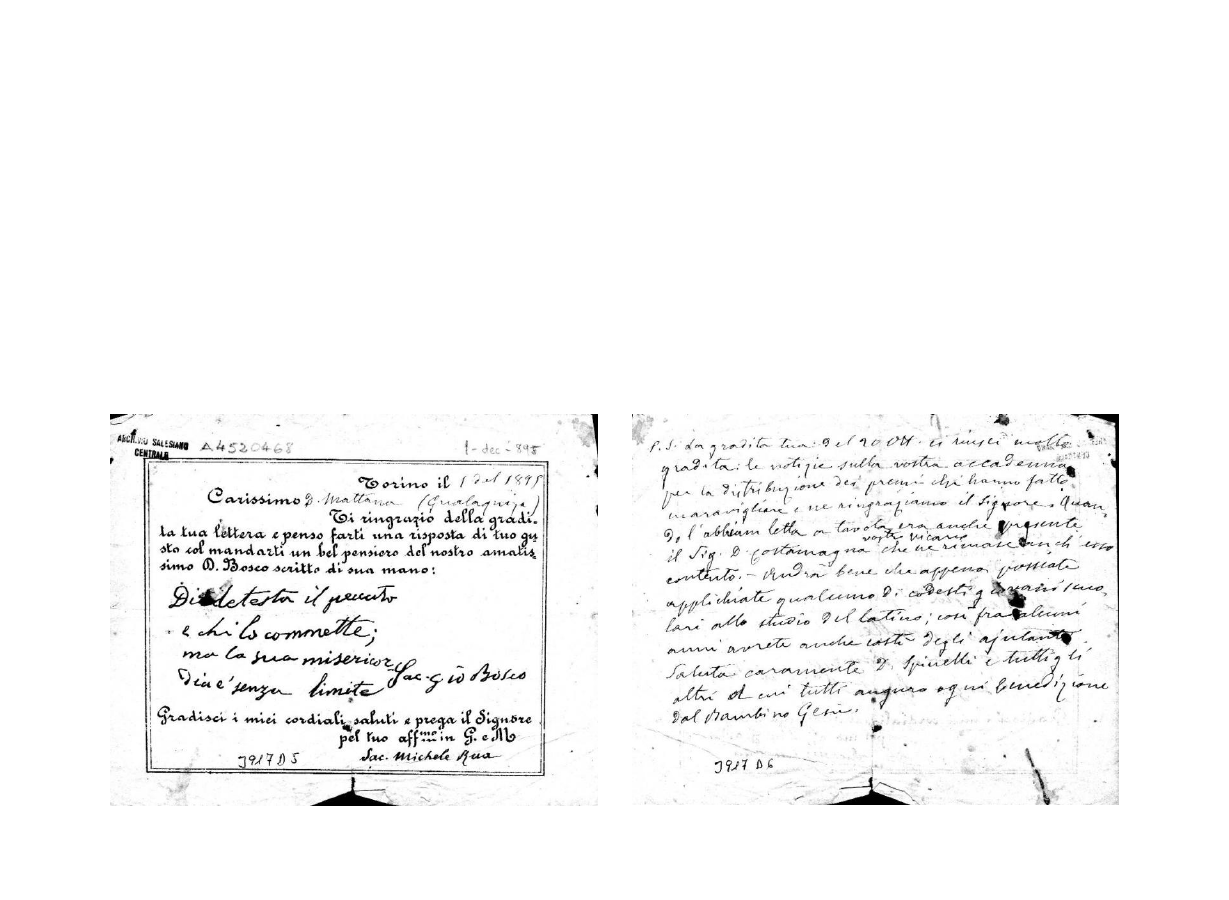 ARCHIVIO SALESIANO
CENTRALE
A4520468
1-dec-895
Torino il 1 Dec 1895
Carissimo D. Mattana (Gualaquiza)
Ti ringrazio della gradi-
ta tua lettera e penso farti una risposta di tuo gu
sto col mandarti un bel pensiero del nostro amatis
simo D. Bosco scritto di sua mano:
Dio detesta il peccato
e chi lo commette;
ma la sua misericor-
dia e' senza limite
Sac. Gio Bosco
Gradisci i miei cordiali saluti e prega il Signore
pel tuo aff.mo in G. e M
Sac. Michele Rua
3917 D 5
P.S. La gradita tua del 20 Ott. ci riuscì molto
gradita: le notizie sulla vostra accademia
per la distribuzione dei premi ci hanno fatto
maravigliare e ne ringraziamo il Signore. Quan-
do l'abbiam letta a tavola era anche presente
il Sig. D. Costamagna vostro vicario che ne rimase anch'esso
contento. - Andrà bene che appena possiate
applichiate qualcuno di codesti giovani sco
lari allo studio del latino; così fra alcuni
anni avrete anche costì degli ajutanti
Saluta caramente D. Spinelli e tutti gli
altri a cui tutti auguro ogni benedizione
dal Bambino Gesù.
3917 D 6